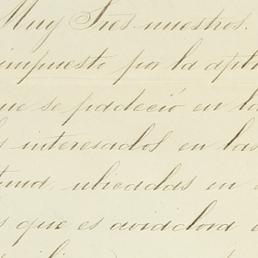 Muy Sres nuestros.
impuesto por la
que se padeció en la
interesados en las
ubicadas en
que es